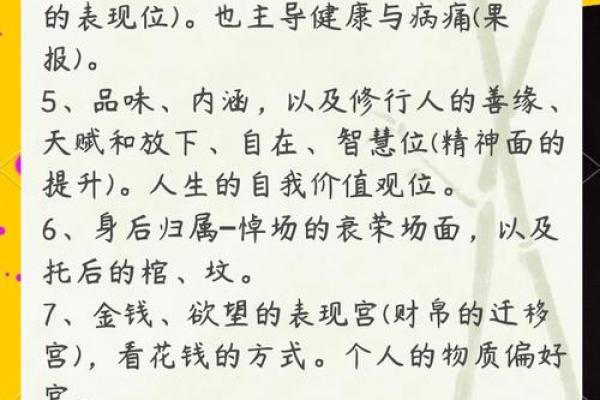 的表现位)。也主导健康与病痛(果
报)。
5、品味、内涵，以及修行人的善缘、
天赋和放下、自在、智慧位(精神面的
提升)。人生的自我价值观位。
6、身后归属-悼场的哀荣场面，以及
托后的棺、坟。
7、金钱、欲望的表现宫(财帛的迁移
宫)，看花钱的方式。个人的物质偏好
宫。